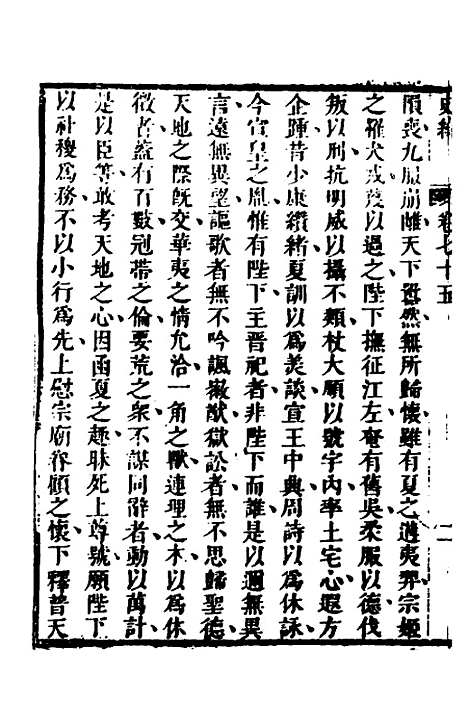 史緯 卷七十五
隕喪九服崩離天下囂然無所歸懷雖有夏之遘夷羿宗姬
之罹犬戎蔑以過之陛下撫征江左奄有舊吳柔服以德伐
叛以刑抗明威以攝不類杖大順以號宇內率土宅心遐方
企踵昔少康纘緒夏訓以爲美談宣王中興周詩以爲休詠
今宣皇之胤惟有陛下主晉祀者非陛下而誰是以邇無異
言遠無異望謳歌者無不吟諷徽猷獄訟者無不思歸聖德
天地之際旣交華夷之情允洽一角之獸連理之木以爲休
徵者蓋有百數冠帶之倫要荒之衆不謀同辭者動以萬計
是以臣等敢考天地之心因函夏之趣昧死上尊號願陛下
以社稷爲務不以小行爲先上慰宗廟眷顧之懷下釋普天